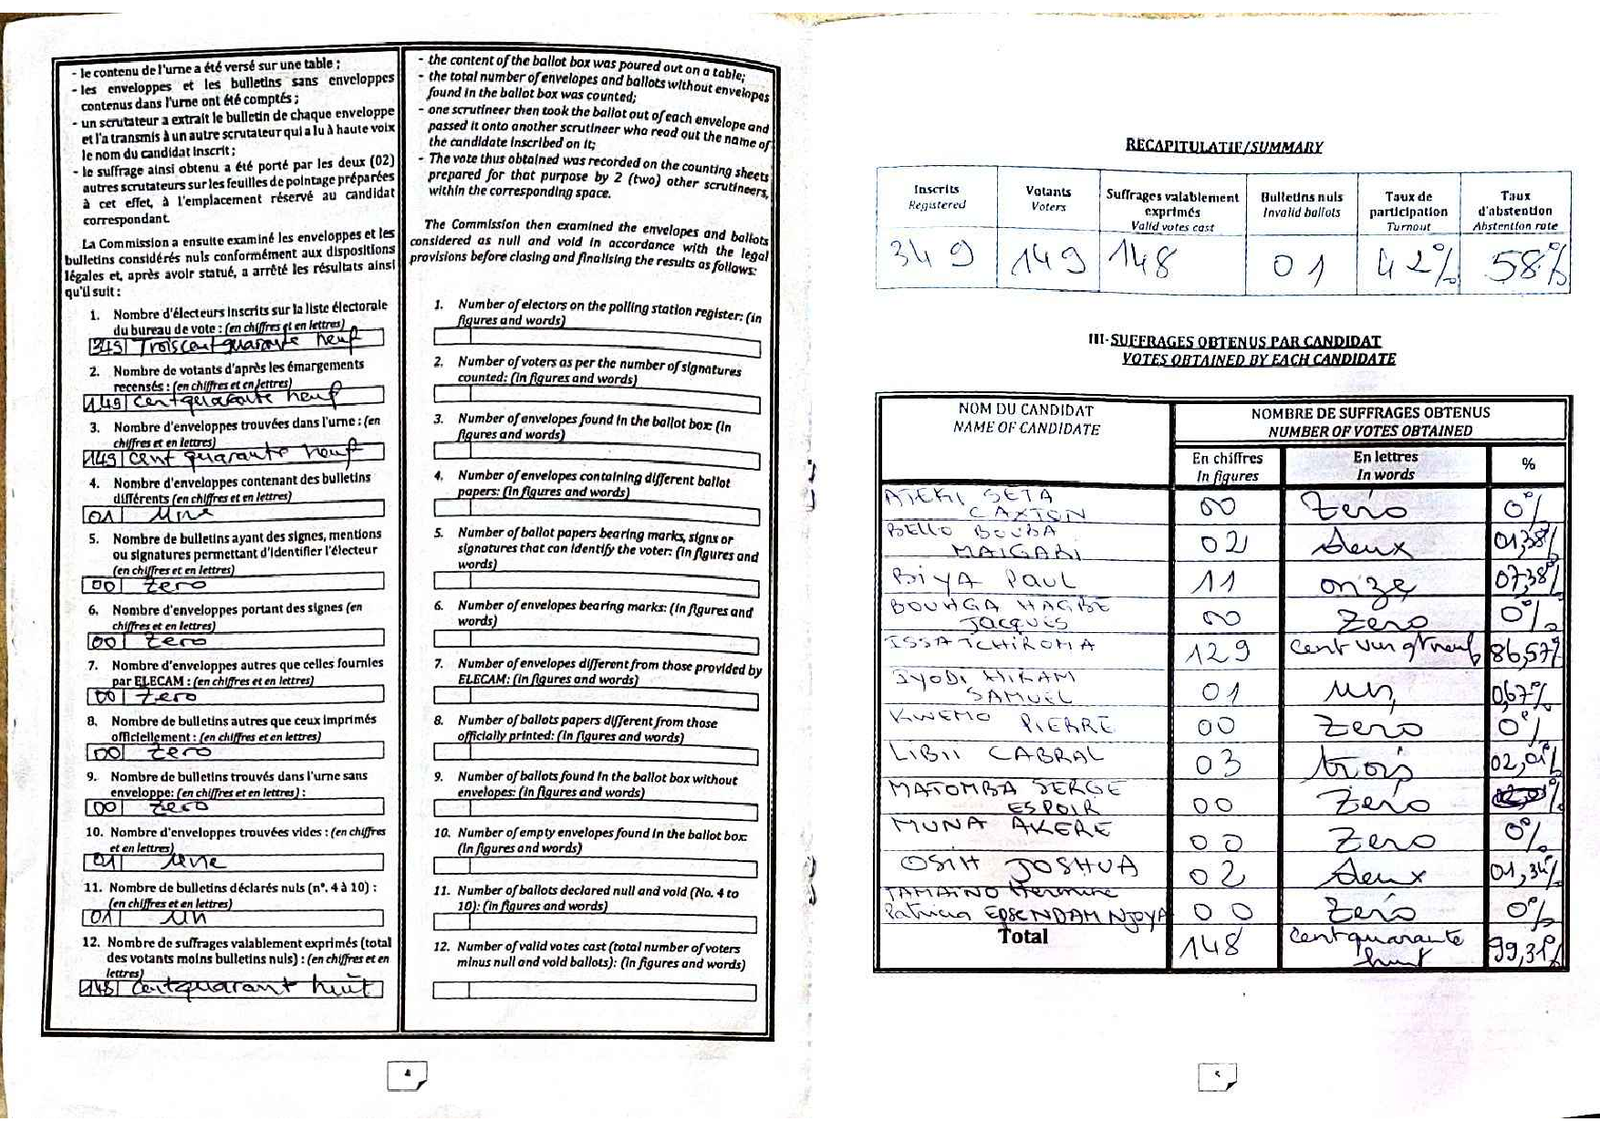 - le contenu de l'urne a été versé sur une table ;
- les enveloppes et les bulletins sans enveloppes
contenus dans l'urne ont été comptés ;
- un scrutateur a extrait le bulletin de chaque enveloppe
et l'a transmis à un autre scrutateur qui a lu à haute voix
le nom du candidat inscrit ;
- le suffrage ainsi obtenu a été porté par les deux (02)
autres scrutateurs sur les feuilles de pointage préparées
à cet effet, à l'emplacement réservé au candidat
correspondant.
La Commission a ensuite examiné les enveloppes et les
bulletins considérés nuls conformément aux dispositions
légales et, après avoir statué, a arrêté les résultats ainsi
qu'il suit :
1. Nombre d'électeurs inscrits sur la liste électorale
du bureau de vote : (en chiffres et en lettres)
349 Trois cent quarante neuf
2. Nombre de votants d'après les émargements
recensés : (en chiffres et en lettres)
149 cent quarante neuf
3. Nombre d'enveloppes trouvées dans l'urne : (en
chiffres et en lettres)
149 cent quarante neuf
4. Nombre d'enveloppes contenant des bulletins
différents (en chiffres et en lettres)
01 une
5. Nombre de bulletins ayant des signes, mentions
ou signatures permettant d'identifier l'électeur
(en chiffres et en lettres)
00 zero
6. Nombre d'enveloppes portant des signes (en
chiffres et en lettres)
00 zero
7. Nombre d'enveloppes autres que celles fournies
par ELECAM : (en chiffres et en lettres)
00 zero
8. Nombre de bulletins autres que ceux imprimés
officiellement : (en chiffres et en lettres)
00 zero
9. Nombre de bulletins trouvés dans l'urne sans
enveloppe: (en chiffres et en lettres) :
00 zero
10. Nombre d'enveloppes trouvées vides : (en chiffres
et en lettres)
01 une
11. Nombre de bulletins déclarés nuls (n°. 4 à 10) :
(en chiffres et en lettres)
01 un
12. Nombre de suffrages valablement exprimés (total
des votants moins bulletins nuls) : (en chiffres et en
lettres)
148 cent quarant huit
- the content of the ballot box was poured out on a table;
- the total number of envelopes and ballots without envelopes
found in the ballot box was counted;
- one scrutineer then took the ballot out of each envelope and
passed it onto another scrutineer who read out the name of
the candidate inscribed on it;
- The vote thus obtained was recorded on the counting sheets
prepared for that purpose by 2 (two) other scrutineers,
within the corresponding space.
The Commission then examined the envelopes and ballots
considered as null and void in accordance with the legal
provisions before closing and finalising the results as follows:
1. Number of electors on the polling station register: (in
figures and words)
2. Number of voters as per the number of signatures
counted: (in figures and words)
3. Number of envelopes found in the ballot box: (in
figures and words)
4. Number of envelopes containing different ballot
papers: (in figures and words)
5. Number of ballot papers bearing marks, signs or
signatures that can identify the voter: (in figures and
words)
6. Number of envelopes bearing marks: (in figures and
words)
7. Number of envelopes different from those provided by
ELECAM: (in figures and words)
8. Number of ballots papers different from those
officially printed: (in figures and words)
9. Number of ballots found in the ballot box without
envelopes: (in figures and words)
10. Number of empty envelopes found in the ballot box:
(in figures and words)
11. Number of ballots declared null and void (No. 4 to
10): (in figures and words)
12. Number of valid votes cast (total number of voters
minus null and void ballots): (in figures and words)
4
RECAPITULATIF/SUMMARY
Inscrits Votants Suffrages valablement Bulletins nuls Taux de Taux
Registered Voters exprimés Invalid ballots participation d'abstention
Valid votes cast Turnout Abstention rate
349 149 148 01 42% 58%
III- SUFFRAGES OBTENUS PAR CANDIDAT
VOTES OBTAINED BY EACH CANDIDATE
NOM DU CANDIDAT NOMBRE DE SUFFRAGES OBTENUS
NAME OF CANDIDATE NUMBER OF VOTES OBTAINED
En chiffres En lettres %
In figures In words
ATEKI SETA
CAXTON 00 Zero 0%
BELLO BOUBA
MAIGARI 02 deux 01,38%
BIYA Paul 11 onze 07,38%
BOUHGA HAGBE
Jacques 00 Zero 0%
ISSA TCHIROMA 129 cent vingt neuf 86,57%
IYODI HIRAM
SAMUEL 01 un 0,67%
KWEMO PIERRE 00 Zero 0%
LIBII CABRAL 03 trois 02,01%
MATOMBA SERGE
ESPOIR 00 Zero
MUNA AKERE 00 Zero 0%
OSIH JOSHUA 02 deux 01,34%
TAMAINO Hermine
Patricia EPSE NDAM NJOYA 00 Zero 0%
Total 148 cent quarante
huit 99,31%
5